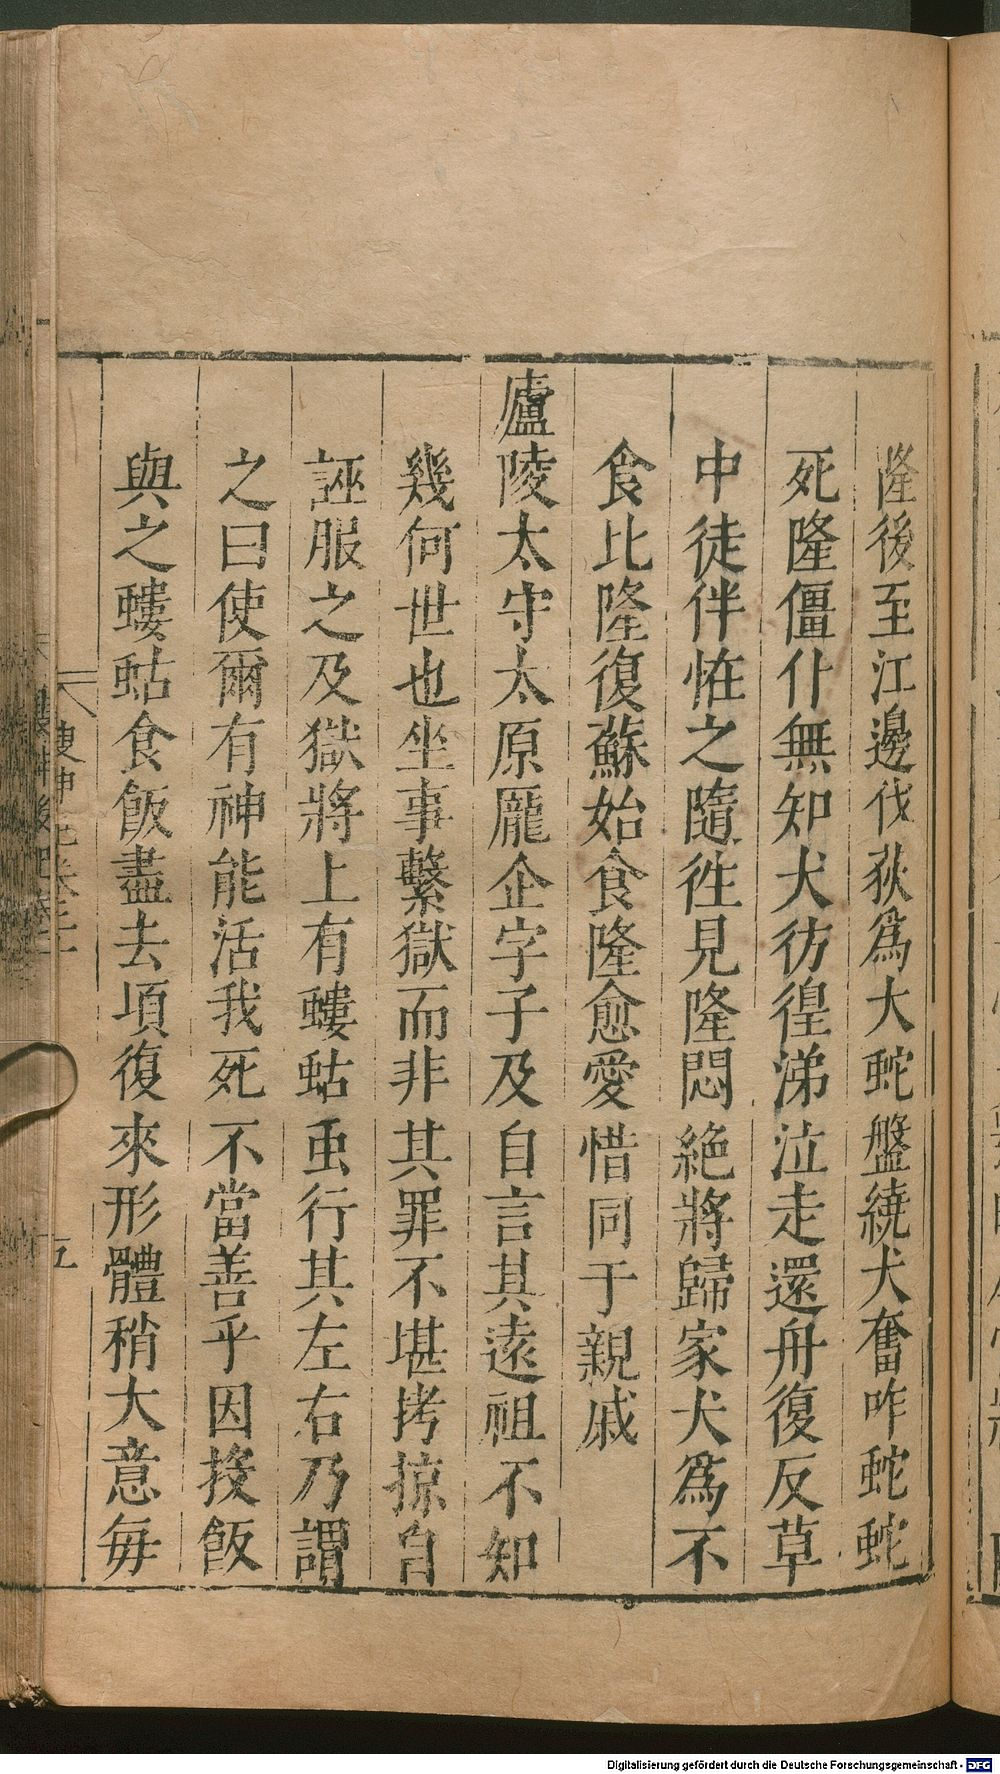 隆後至江邊伐荻爲大蛇盤繞犬奮咋蛇蛇
死隆僵仆無知犬彷徨涕泣走還舟復反草
中徒伴恠之隨徃見隆悶絶將歸家犬爲不
食比隆復蘇始食隆愈愛惜同于親戚
廬陵太守太原龐企字子及自言其遠祖不知
幾何世也坐事繫獄而非其罪不堪拷掠自
誣服之及獄將上有螻蛄虫行其左右乃謂
之曰使爾有神能活我死不當善乎因投飯
與之螻蛄食飯盡去頃復來形體稍大意每
五
Digitalisierung gefördert durch die Deutsche Forschungsgemeinschaft - DFG